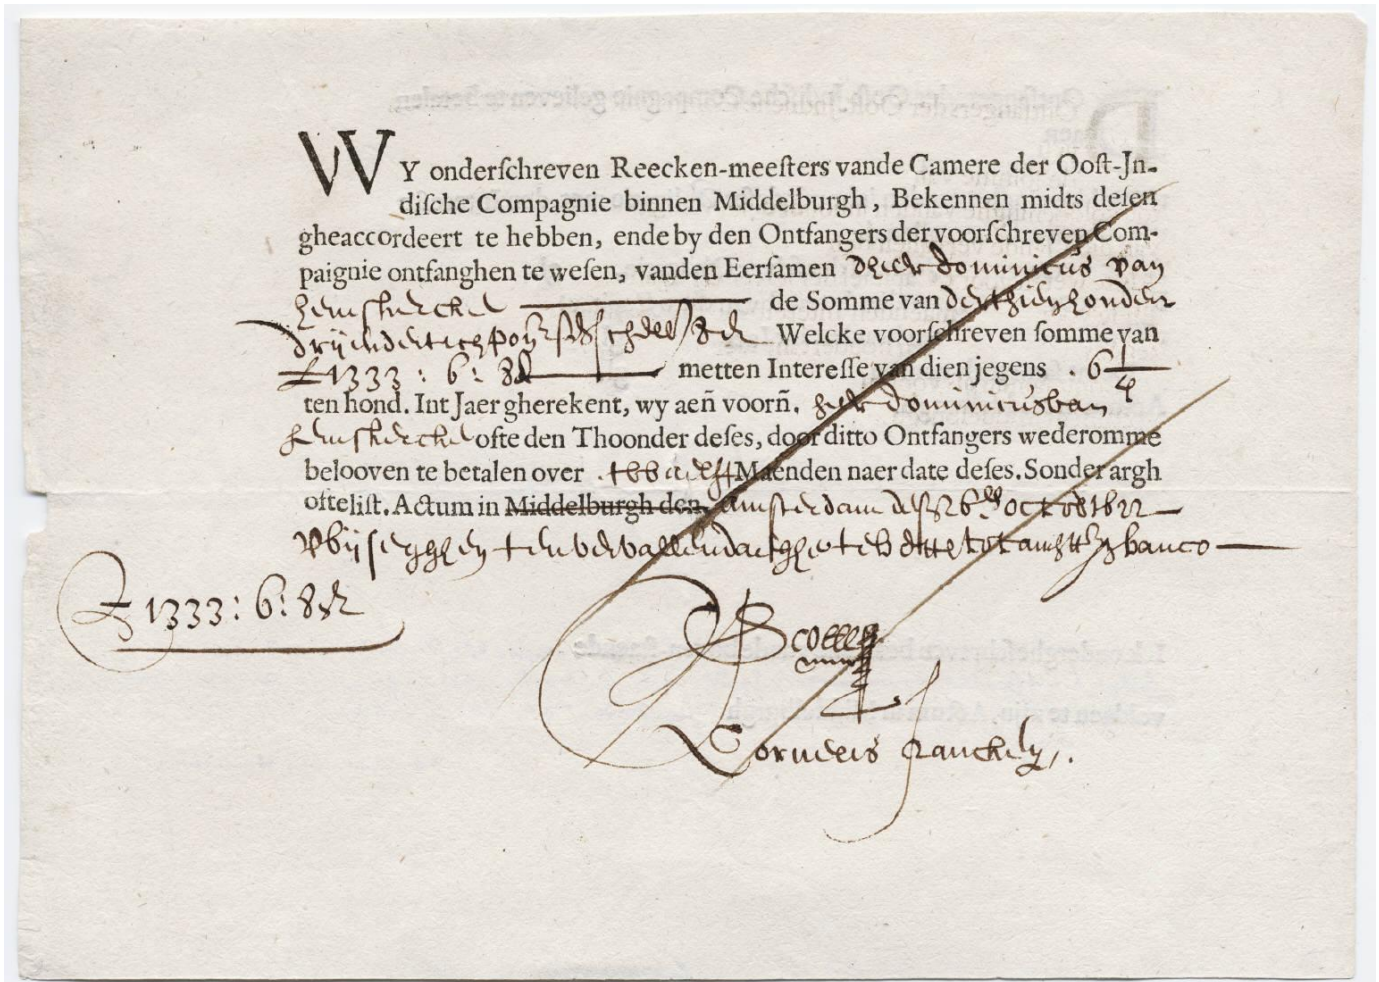 WY onderſchreven Reecken-meeſters vande Camere der Ooſt-Jn-
diſche Compagnie binnen Middelburgh, Bekennen midts deſen
gheaccordeert te hebben, ende by den Ontfangers der voorſchreven Com-
paignie ontfanghen te weſen, vanden Eerſamen dheer dominicus van
hemskercke de Somme van derthienhondert
drijendertich pont ſes ſch Welcke voorſchreven ſomme van
£ 1333 : 6 : 8 metten Intereſſe van dien jegens . 6 1/4
ten hond. Int Jaer gherekent, wy aen̄ voorn̄. heer dominicus van
hemskercke ofte den Thoonder deſes, door ditto Ontfangers wederomme
belooven te betalen over twaelff Maenden naer date deſes. Sonder argh
ofte liſt. Actum in Middelburgh den, Amsterdam October 1622
banco
£ 1333 : 6 : 8
Cornelis